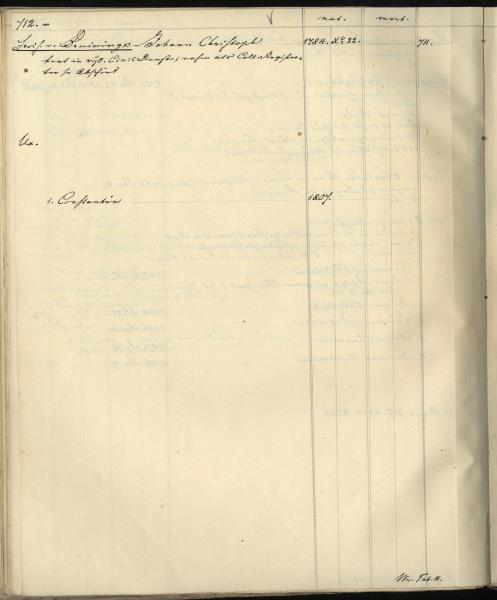 712.-
nat. mort.
v. Johann Christoph 1784. Xbr 22. 711.
trat in russ. Civil Dienste; nahm als Coll. Registra-
tor s. Abschied
Ux.
1. Constantin 1807.
Tab. II.